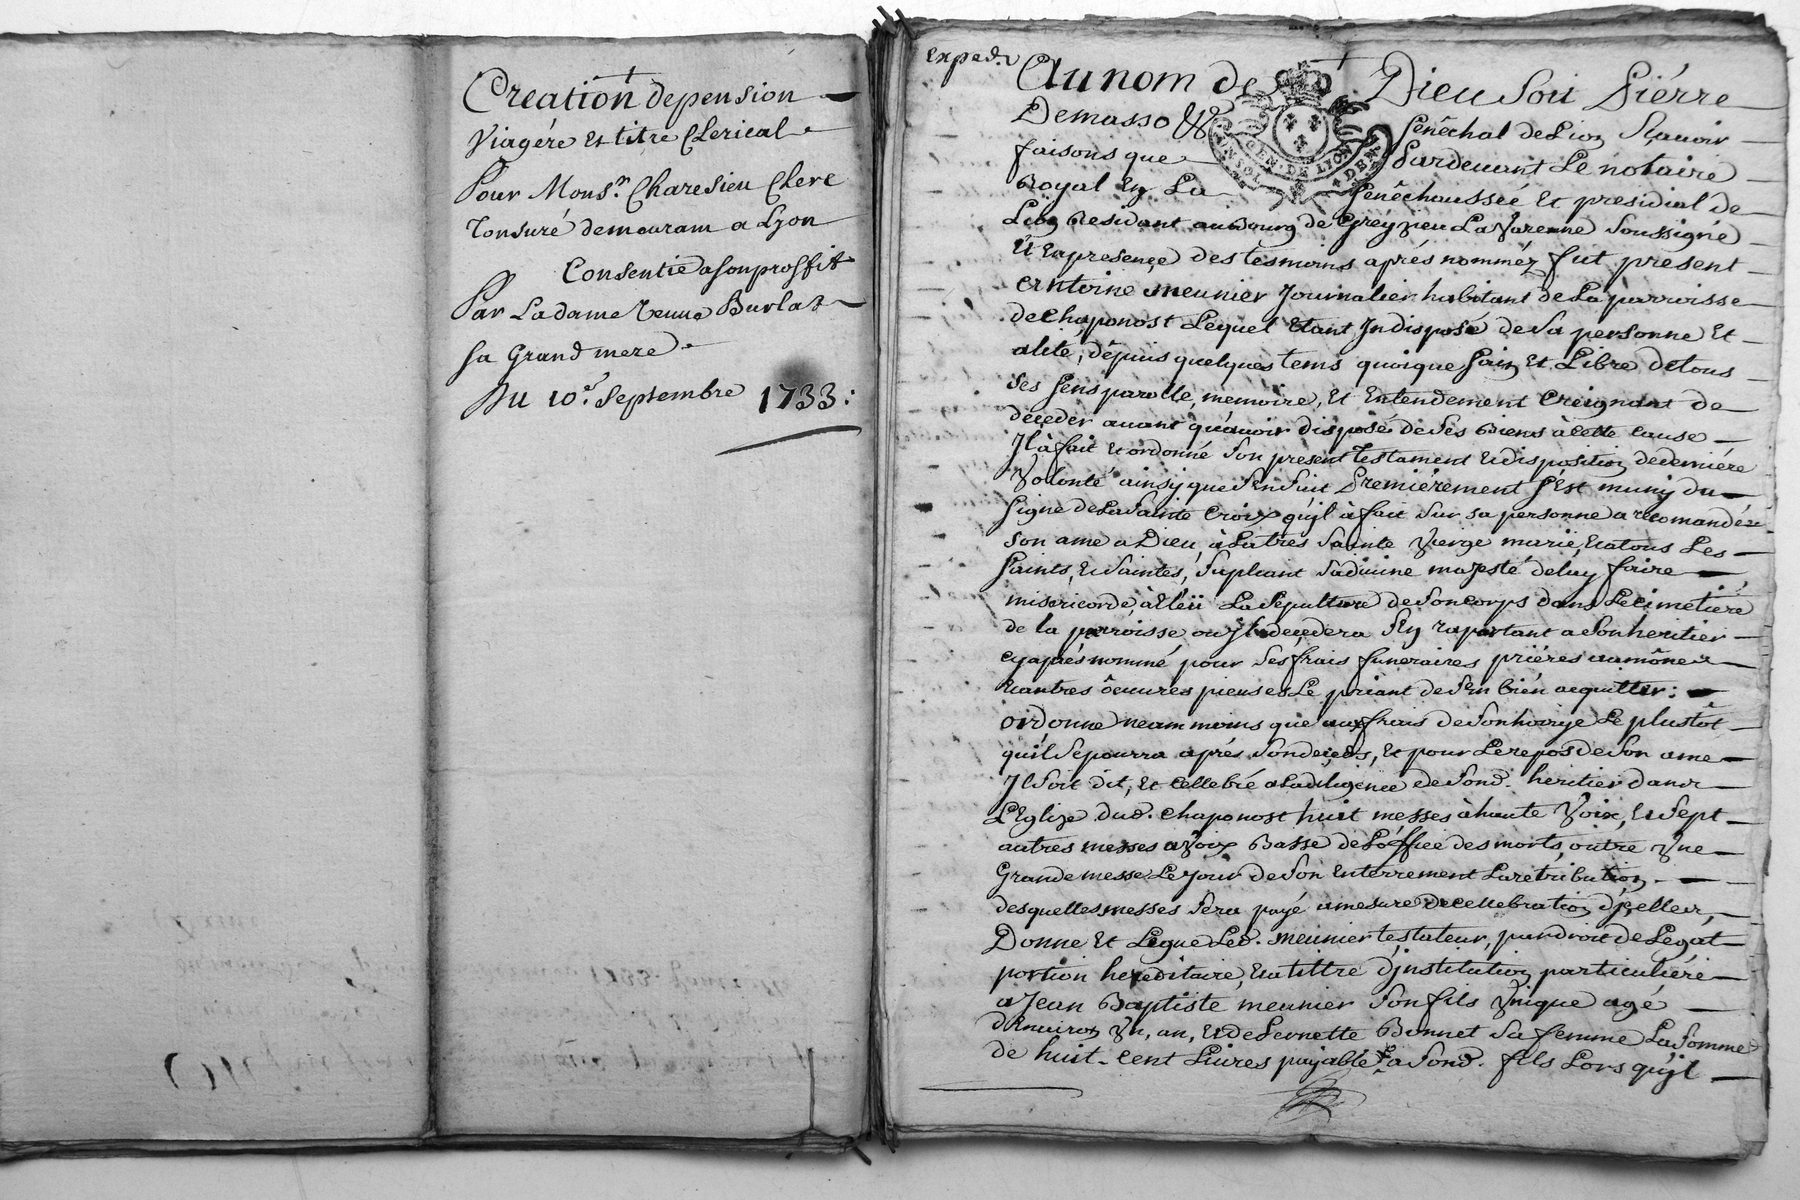 Creation de pension
Viagére Et titre Clerical
Pour Mons.r Charesieu Clerc
Tonsuré demeurant a Lyon
Consentie a son proffit
Par La dame veuve Burlat
sa Grand mere
Du 10.e Septembre 1733:
Exped.
Au nom de Dieu Soit Piérre
Demasso Sénéchal de Lion Sçavoir
faisons que Pardevant Le notaire
Royal En La Sénéchaussée Et présidial de
Lion Residant au Bourg de Gréyzieu La Varenne Soussigné
Et En presençe des tesmoins aprés nommez fut present
Antoine meunier Journalier habitant de La parroisse
de Chaponost Lequel Etant Indisposé de sa personne Et
alité, dépuis quelques tems quoique Sain Et Libre de tous
ses sens parolle, memoire, Et Entendement Creignant de
déçéder avant qu'avoir disposé de ses Biens à cette cause
Il à fait Et ordonné Son present testament Et disposition de derniére
Volonté ainsy que S'en Suit Premiérement s'Est muny du
Signe de La Sainte Croix qu'jl à fait Sur sa personne a recomandé
son ame a Dieu, à La trés Sainte Vierge marie, Et a tous Les
Saints, Et Saintes, Supliant Sa divine majesté de luy faire
misericorde, à Eleü La Sépulture de Son corps dans Le cimetiére
de la parroisse ou Jl deçedera S'En raportant a Son heritier
cy aprés nommé pour Ses frais funeraires priéres aumônes
Et autres oeuvres pieuses Le priant de S'En bién acquitter:
ordonne neammoins que aux frais de Son hoirye Le plustôt
qu'il Se pourra aprés Son deçeds, Et pour Le repos de Son ame
Jl Soit dit, Et Cellebré a La diligençe de Sond. heritier dans
L'Eglize dud. Chaponost huit messes à haute Voix, Et Sept
autres messes a Voix Basse de L'office des morts, outre Vne
Grande messe Le jour de Son Enterrement La retribution
desquelles messes Sera payé a mesure de Cellebration d'jcelles,
Donne Et Legue Led. meunier testateur, par droit de Legat
portion hereditaire, Et a tittre d'jnstitution particuliére
a Jean Baptiste meunier Son fils Vnique agé
d'Environ Vn, an, Et de Leonette Bonnet Sa femme La Somme
de huit-cent Livres payable a Sond. fils Lors qu'jl